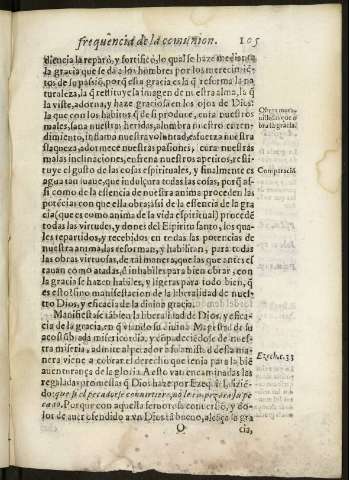 frequencia de la comunion. 105
diencia la reparò, y fortificò, lo qual se haze mediante
la gracia que se dà a los hombres por los merecimiē-
tos de su passiō, porq̃ esta gracia es la q̃ reforma la na
turaleza, la q̃ restituye la imagen de nuestra alma, la q̃
la viste, adorna, y haze graciosa en los ojos de Dios:
la que con los habitos q̃ de si produce, cura nuestros
males, sana nuestras heridas, alumbra nuestro enten-
dimiento, inflama nuestra voluntad, esfuerça nuestra
flaqueza, adormece nuestras passiones, cura nuestras
malas inclinaciones, enfrena nuestros apetitos, restitu
ye el gusto de las cosas espirituales, y finalmente es
agua tan suaue, que indulçora todas las cosas, porq̃ as-
si como de la essencia de nuestra anima proceden las
potẽcias con que ella obra; assi de la essencia de la gra
cia (que es como anima de la vida espiritual) procedẽ
todas las virtudes, y dones del Espiritu santo, los qua-
les repartidos, y recebidos en todas las potencias de
nuestra anima las reforman, y habilitan, para todas
las obras virtuosas, de tal manera, que las que antes es
tauan como atadas, è inhabiles para bien obrar, con
la gracia se hazen habiles, y ligeras para todo bien, q̃
es estotrosino manifestacion de la liberalidad de nues-
tro Dios, y eficacia de la diuina gracia.
Manifiestase tābien la liberalidad de Dios, y efica-
cia de la gracia, en q̃ vsando su diuina Magestad de su
acostūbrada misericordia, y cōpadeciēdose de nues-
tra miseria, admite al pecador a su amistad: desta ma-
nera viene a cobrar el derecho que tenia para la bien
auenturança de la gloria. A esto van encaminadas las
regaladas promessas q̃ Dios haze por Ezequiel, diziē
do: que si el pecador se conuirtiere, no le imputarà su pe
cado. Porque con aquella feruorosa conuersiō, y do-
lor de auer ofendido a vn Dios tā bueno, alcāça la gra
Q cia,
Obras mara-
uillosas que o
bra la gracia.
Comparaciō.
Ezech. c. 33